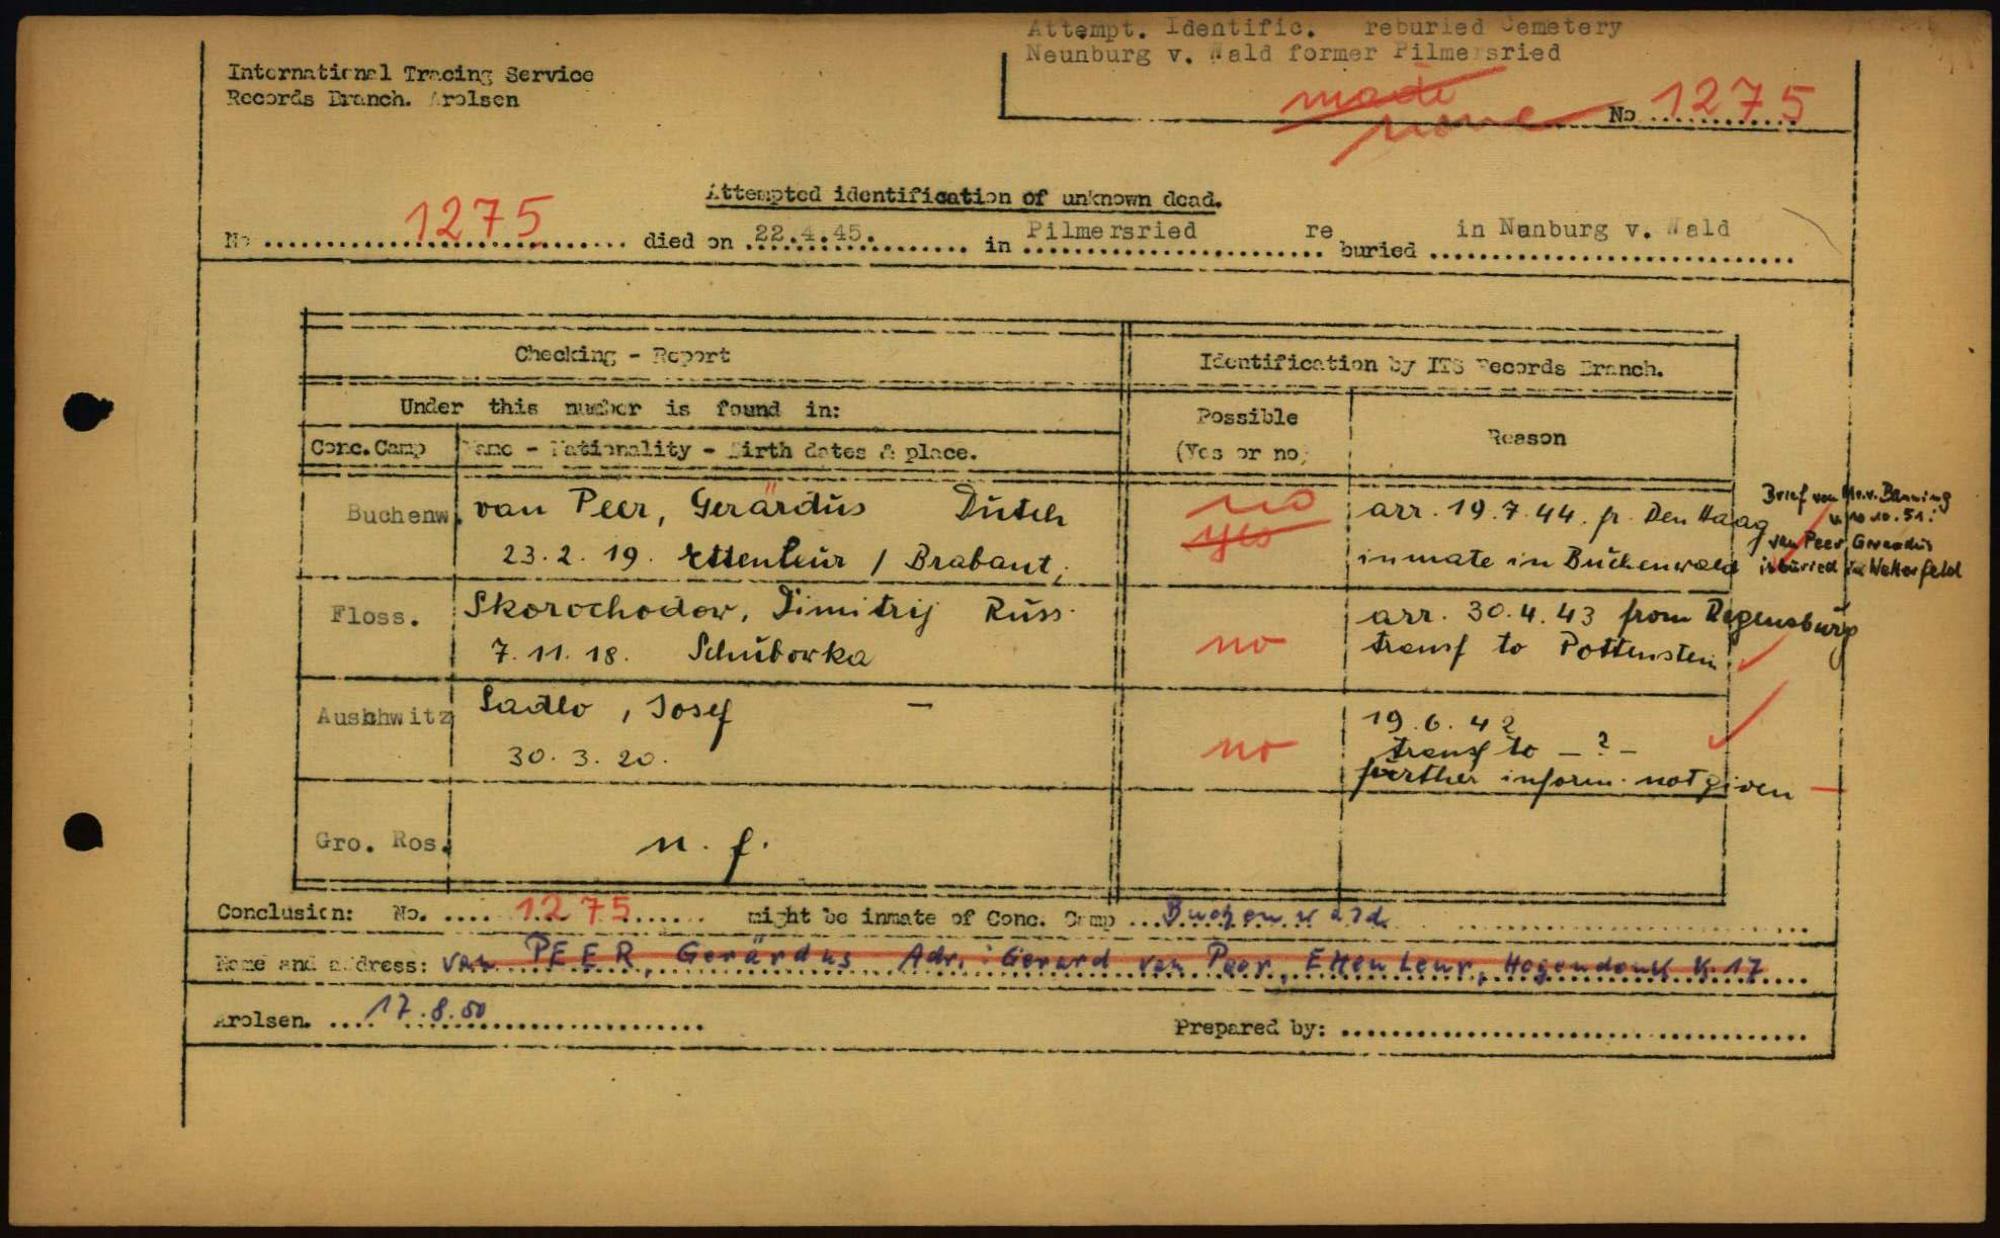 Attempt. Identific. reburied Cemetery
Neunburg v. Wald former Pilmersried
International Tracing Service
Records Branch. Arolsen
made
none
No 1275
Attempted identification of unknown dead.
No 1275 died on 22.4.45. in Pilmersried re buried in Nunburg v. Wald
Checking - Report
Identification by ITS Records Branch.
Under this number is found in:
Possible
(Yes or no)
Reason
Conc. Camp
Name - Nationality - Birth dates & place.
Buchenw. van Peer, Gerardus Dutch
no
yes
arr. 19.7.44. fr. Den Haag
23.2.19. Ettenleur / Brabant.
inmate in Buchenwald
Brief von Mr. v. Banning
v. 10.10.51:
van Peer Gerardus
is buried in Wetterfeld
Floss. Skorochodow, Dimitrij Russ.
7.11.18. Schuborka
no
arr. 30.4.43 from Regensburg
transf to Pottenstein
Auschwitz Sadlo, Josef -
30.3.20.
no
19.6.42
transf to - ? -
further inform. not given
Gro. Ros. n. f.
Conclusion: No. 1275 might be inmate of Conc. Camp Buchenwald
Name and address: van PEER, Gerardus Adr.: Gerard van Peer, Etten Leur, Hogendonk K. 17
Arolsen. 17.8.50
Prepared by: